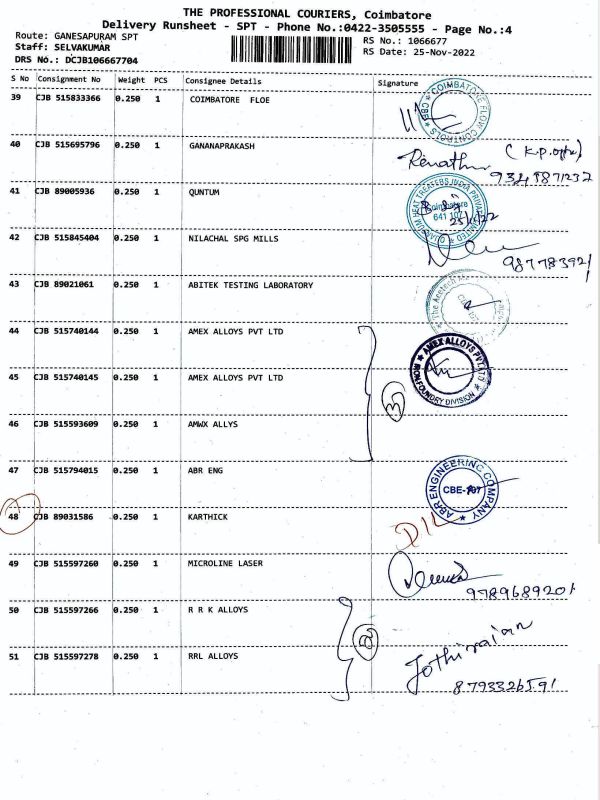 THE PROFESSIONAL COURIERS, Coimbatore
Delivery Runsheet - SPT - Phone No.:0422-3505555 - Page No.:4
Route: GANESAPURAM SPT
Staff: SELVAKUMAR
DRS No.: DCJB106667704
RS No.: 1066677
RS Date: 25-Nov-2022
S No Consignment No Weight PCS Consignee Details Signature
39 CJB 515833366 0.250 1 COIMBATORE FLOE
COIMBATORE FLOW CONTROLS ★ CBE ★
40 CJB 515695796 0.250 1 GANANAPRAKASH
41 CJB 89005936 0.250 1 QUNTUM
QUANTUM HEAT TREATERS INDIA PRIVATE LIMITED ★ Coimbatore 641 107
25/11/22
42 CJB 515845404 0.250 1 NILACHAL SPG MILLS
987783921
43 CJB 89021061 0.250 1 ABITEK TESTING LABORATORY
44 CJB 515740144 0.250 1 AMEX ALLOYS PVT LTD
★ AMEX ALLOYS PVT LTD ★ IRON FOUNDRY DIVISION
45 CJB 515740145 0.250 1 AMEX ALLOYS PVT LTD
3
46 CJB 515593609 0.250 1 AMWX ALLYS
47 CJB 515794015 0.250 1 ABR ENG
ABR ENGINEERING COMPANY ★ CBE-107
48 CJB 89031586 0.250 1 KARTHICK
D/L
49 CJB 515597260 0.250 1 MICROLINE LASER
9789689201
50 CJB 515597266 0.250 1 R R K ALLOYS
2
Jothirajan
51 CJB 515597278 0.250 1 RRL ALLOYS
8793326591